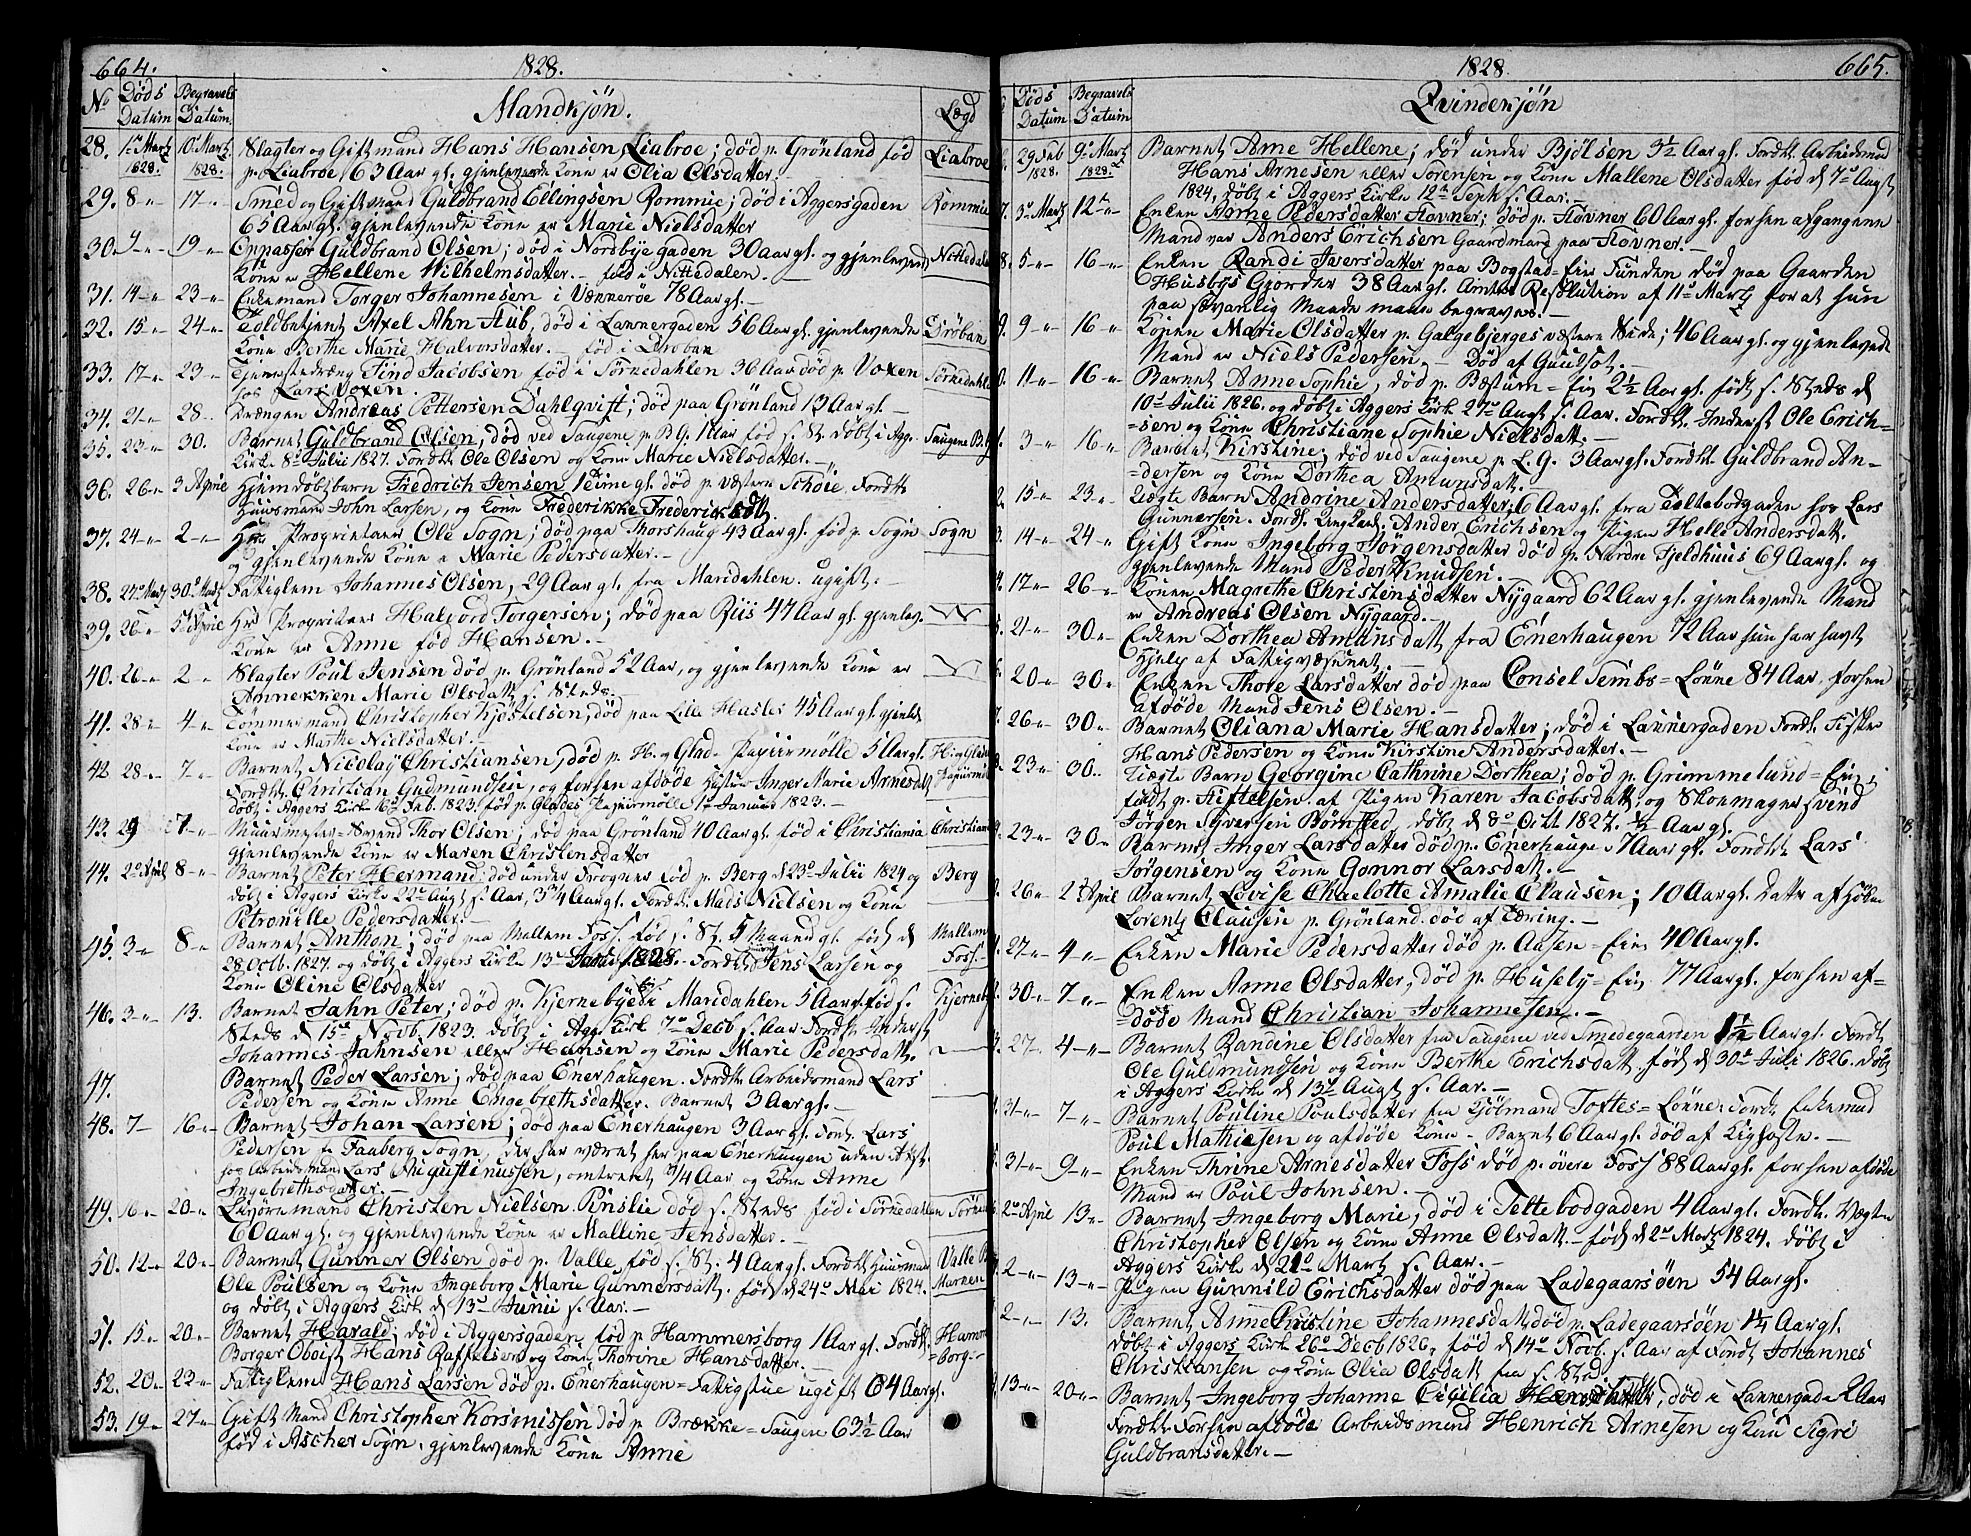 664. 1828.
No Døds Datum Begravels Datum Mandkjøn. Lægd
28. 1ste Martz 1828. 10de Martz 1828. Slagter og Giftmand Hans Hansen Liabroe; død p. Grønland fød Liabroe
p. Liabroe 63 Aar gl. gjenlevende Kone er Olia Olsdatter.
29. 8 -"- 17 -"- Smed og Giftmand Guldbrand Ellingsen Rommie; død i Aggersgaden Rommie
65 Aar gl. gjenlevende Kone er Marie Nielsdatter
30. 9 -"- 19 -"- Oppasser Guldbrand Olsen; død i Nordbyegaden 30 Aar gl. og gjenlevend. Nittedalen
Kone er Hellene Wilhelmsdatter. – fød i Nittedalen. –
31. 14 -"- 23 -"- Enkemand Torger Johannesen i Vænnerøe 78 Aar gl. –
32. 15 -"- 24 -"- Toldbetjent Axel Ahn Stub, død i Lannergaden 56 Aar gl. gjenlevende Drøbak
Kone Berthe Marie Halvorsdatter. – fød i Drøbak
33. 17 -"- 23 -"- Tjenestedræng Find Jacobsen fød i Sørkedahlen 36 Aar død p. Voxen Sørkedahl
hos Lars Voxen.
34. 21 -"- 28. Drængen Andreas Pettersen Dahlqvist; død paa Grønland 13 Aar gl. –
35. 23 -"- 30. Barnet Guldbrand Olsen, død ved Saugene p. B.G. 1 Aar fød s. St. døbt i Agg. Saugene B.G.
Kirke 8de Julii 1827. Fordt. Ole Olsen og Kone Marie Nielsdatter. –
36. 26 -"- 3 Aprile Hjemdøbtbarn Fredrich Jensen 1 Time gl. død p. væstern Schøie. Fordt.
Huusmand John Larsen, og Kone Frederikke Frederiksdtt.
37. 24 -"- 2 -"- Hr. Proprietair Ole Sogn; død paa Thorshaug 43 Aar gl. fød p. Sogn Sogn
og gjenlevende Kone er Marie Pedersdatter. –
38. 24de Martz 30de Martz Fattiglem Johannes Olsen, 29 Aar gl. fra Maridahlen. ugift. –
39. 26 -"- 5te Aprile Hr. Proprietair Halford Torgersen; død paa Riis 47 Aar gl. gjenlev.
Kone er Anne fød Hansen. –
40. 26 -"- 2 -"- Slagter Poul Jensen død p. Grønland 52 Aar, og gjenlevende Kone er
Annekken Marie Olsdatt. s. Steds.
41. 28 -"- 4 -"- Tømmermand Christopher Kjøstelsen, død paa Lille Hasler 45 Aar gl. gjenlevd.
Kone er Marthe Nielsdatter.
42. 28 -"- 7 -"- Barnet Nicolay Christiansen, død p. H. og Glad. Papiirmølle 5 Aar gl. H. og Glades
Fordt. Christian Gudmundsen, og forhen afdøde Hustru Inger Marie Arnesdatt. Papiirmø
døbt i Aggers Kirke 16de Feb. 1823. fød p. Glades Papiirmølle 1ste Januar 1823. –
43. 29 7 -"- Muurmester-Svend Thor Olsen; død paa Grønland 40 Aar gl. fød i Christiania Christiania
gjenlevende Kone er Maren Christensdatter
44. 2de April 8 -"- Barnet Peter Hermand; død under Frogner fød p. Berg d. 23de Julii 1824 og Berg
døbt i Aggers Kirke 22de Augt. s. Aar, 3 3/4 Aar gl. Fordt. Mads Nielsen og Kone
Petronille Pedersdatter. –
45. 3 -"- 8 -"- Barnet Anthon; død paa Mellem Foss. fød s. St. 5 Maaned gl. født d. Mellem
28 Octb. 1827. og døbt i Aggers Kirke 13de Januar 1828. Fordt. Jens Larsen og Foss. –
Kone Oline Olsdatter
46. 3 -"- 13. Barnet Jahn Peter; død p. Kjernebye i Maridahlen 5 Aar gl. fød s. Kjerneby
Steds d. 15de Novb. 1823. døbt i Agg. Kirk. 7de Decb. s. Aar Fordt. Inderst
Johannes Jahnsen eller Hansen og Kone Marie Pedersdatt.
47. Barnet Peder Larsen; død paa Enerhaugen. Fordt. Arbeidsmand Lars
Pedersen og Kone Anne Engebrethsdatter. Barnet 3 Aar gl. –
48. 7 – 16 -"- Barnet Johan Larsen; død paa Enerhaugen 3 Aar gl. Fordt. Lars
Pedersen fr. Faaberg Sogn, der har været her paa Enerhaugen uden Attst.
hos Arbeidsmand Lars Augustinussen, omtrent 3/4 Aar og Kone Anne
Ingebrethsdatter. –
49. 16 -"- 20 -"- Livøremand Christen Nielsen Pinslie død s. Steds fød i Sørkedahlen Sørked
60 Aar gl. og gjenlevende Kone er Malline Jensdatter. –
50. 12 -"- 20 -"- Barnet Gunner Olsen død p. Valle fød s. St. 4 Aar gl. Fordt. Huusmand Valle P.
Ole Poulsen og Kone Ingeborg Marie Gunnersdatt. fød d. 24de Mai 1824. Marken
og døbt i Aggers Kirk. d. 13de Junii s. Aar. –
51. 15 -"- 20 -"- Barnet Harald; død i Aggersgaden fød p. Hammersborg 1 Aar gl. Fordt. Hamm
Borger Oboist Hans Raffelsen og Kone Thorine Hansdatter. – =borg. –
52. 20 -"- 23 -"- Fattiglem Hans Larsen død p. Enerhaugen=Fattigstue ugift 64 Aar gl.
53. 19 -"- 27 -"- Gift Mand Christopher Korsmissen død p. Brække=Saugene 63½ Aar
fød i Ascher Sogn, gjenlevende Kone Anne
1828 665.
Døds Datum Begravels Datum Qvindekjøn
29 Feb 1828. 9de Martz 1828. Barnet Anne Hellene; død under Bjølsen 3½ Aar gl. Fordt. Arbeidsmd
Hans Arnesen eller Sørensen og Kone Mallene Olsdatter fød d. 7de Augt.
1824, døbt i Aggers Kirke 12te Septb. s. Aar.
7. 3de Martz 12te -"- Enken Anne Pedersdatter Stovner; død p. Stovner 60 Aar gl. forhen afgangene
Mand var Anders Erichsen Gaardmand paa Stovner. –
8. 5 -"- 16 -"- Enken Randi Iversdatter paa Bogstad-Eie Funden død paa Gaarden
Husbys Gjorder 38 Aar gl. Amtets Resolution af 11de Martz for at hun
paa sævanlig Maade maae begraves. –
9. 9 -"- 16 -"- Konen Marie Olsdatter p. Galgebjerges væstere Side; 46 Aar gl. og gjenlevende
Mand er Niels Pedersen. – Død af Guulsot. –
11 -"- 16 -"- Barnet Anne Sophie, død p. Bæstum=Eie 2½ Aar gl. født s. Steds d.
10de Julii 1826. og døbt i Aggers Kirk. 27de Augt. s. Aar. Fordt. Inderst Ole Erich=
=sen og Kone Christiane Sophie Nielsdatt. –
3 -"- 16 -"- Barnet Kirstine; død ved Saugene p. L. G. 3 Aar gl. Fordt. Guldbrand An=
=dersen og Kone Dorthea Amundsdatt. –
15 -"- 23 -"- Uægte Barn Andrine Andersdatter; 6 Aar gl. fra Teltebodgaden hos Lars
Gunnersen. Fordt. Ungkarl. Ander Erichsen og Pigen Helle Andersdatt.
14 -"- 24 -"- Gift Kone Ingeborg Jørgensdatter død p. Nordre Fjeldhuus 69 Aar gl. og
gjenlevende Mand Peder Knudsen.
17 -"- 26 -"- Konen Magrethe Christensdatter Nygaard 62 Aar gl. gjenlevende Mand
er Andreas Olsen Nygaard. –
21 -"- 30 -"- Enken Dorthea Amundsdatt. fra Enerhaugen 72 Aar hun har havt
Hjelp af Fattigvæsenet. –
20 -"- 30 -"- Enken Thore Larsdatter død paa Consel Tembs=Lønne 84 Aar, forhen
afdøde Mand Jens Olsen. –
26 -"- 30 -"- Barnet Oliana Marie Hansdatter; død i Lannergaden Fordt. Fisker
Hans Pedersen og Kone Kirstine Andersdatter. –
23 -"- 30. Uægte Barn Georgine Cathrine Dorthea; død p. Grimmelund=Eie,
født p. Stiftelsen af Pigen Karen Jacobsdatt. og Skomagersvend
Jørgen Syversen Børnsted, døbt d. 8de Octb. 1827. ½ Aar gl.
23 -"- 30 -"- Barnet Inger Larsdatter død p. Enerhaugen 7 Aar gl. Fordt. Lars
Jørgensen og Kone Gonnor Larsdatt. –
26 -"- 2de April Barnet Lovise Charlotte Amalie Clausen; 10 Aar gl. Datter af
Lorentz Clausen p. Grønland. død af Tæring. –
27 -"- 4 -"- Enken Marie Pedersdatter død p. Aasen=Eie 40 Aar gl.
30 -"- 7 -"- Enken Anne Olsdatter, død p. Husely=Eie 77 Aar gl. forhen af=
=døde Mand Christian Johannesen. –
27 -"- 4 -"- Barnet Randine Olsdatter fra Saugene ved Smedegaarten 1½ Aar gl. Fordt.
Ole Guldmundsen og Kone Berthe Erichsdatt. fød d. 30de Juli 1826. døbt
i Aggers Kirke d. 13de Augt. s. Aar. –
31 -"- 7 -"- Barnet Pouline Poulsdatter fra Kjøbmand Toftes=Lønne. Fordt. Enkemand
Poul Mathiesen og afdøde Kone – Barnet 6 Aar gl. død af Kighoste. –
31 -"- 9 -"- Enken Thrine Arnesdatter Foss død p. øvere Foss 88 Aar gl. forhen afdøde
Mand er Poul Johnsen. –
2de April 13 -"- Barnet Ingeborg Marie, død i Teltebodgaden 4 Aar gl. Fordt. Vogter
Christopher Olsen og Kone Anne Olsdatt. – født d. 2de Martz 1824. døbt i
Aggers Kirke d. 21de Mart. s. Aar. –
2 -"- 13 -"- Pigen Gunnild Erichsdatter død paa Ladegaarsøen 54 Aar gl.
2 -"- 13. Barnet Anne Christine Johannesdatt. død p. Ladegaarsøen 1¼ Aar gl.
døbt i Aggers Kirk. 26de Decb. 1826, fød d. 14de Novb. s. Aar af Fordt. Johannes
Christiansen og Kone Olia Olsdatt. fra s. Sted
13 -"- 20 -"- Barnet Ingeborg Johanne Cicilia, død i Lannergade 2 Aar
Fordt. Forhen afdøde Arbeidsmand Henrich Arnesen og Kone Sigri
Guldbransdatter. –